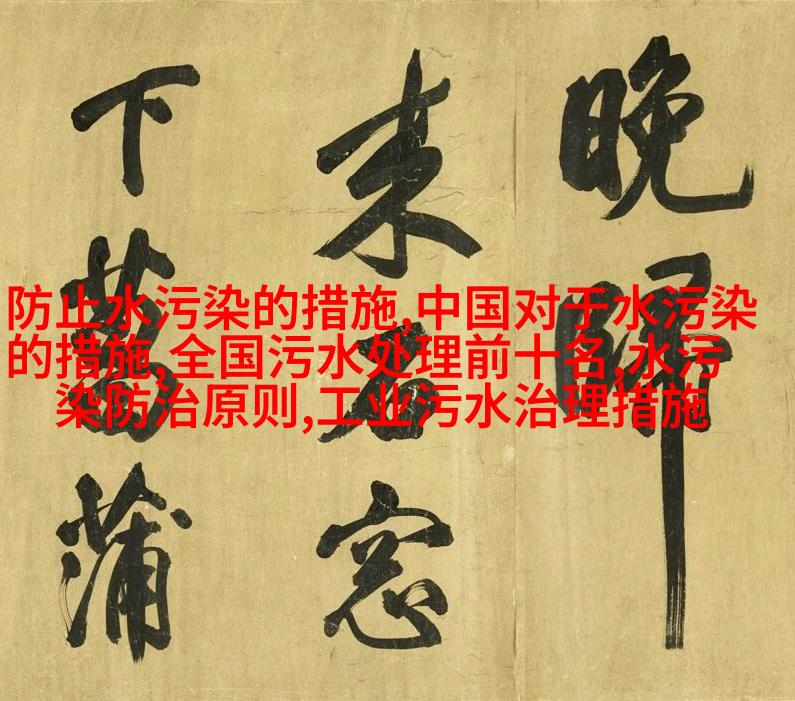 防止水污染的措施,中国对于水污染
的措施,全国污水处理前十名,水污
染防治原则,工业污水治理措施
晚歸
来窓
下蒲